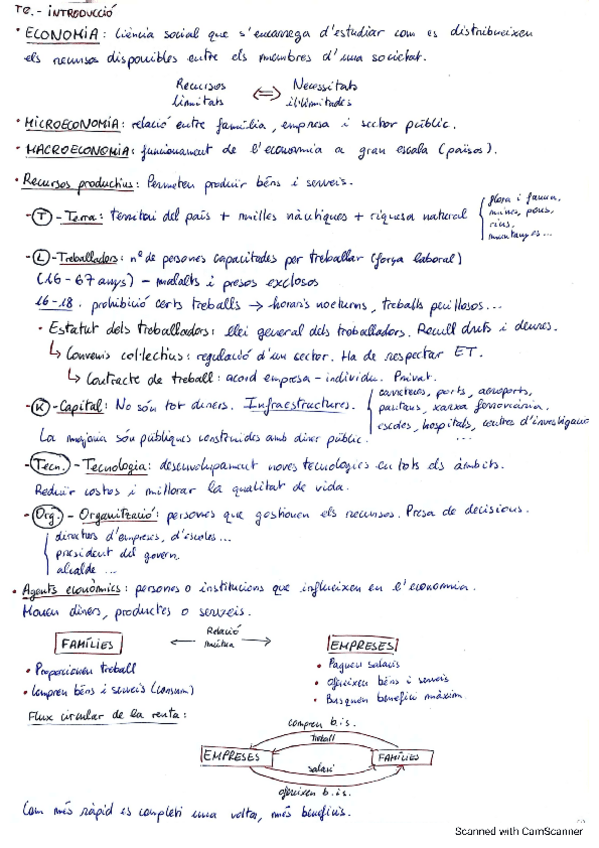 T0.- INTRODUCCIÓ
• ECONOMIA: Ciència social que s'encarrega d'estudiar com es distribueixen
els recursos disponibles entre els membres d'una societat.
Recursos limitats ⇔ Necessitats il·limitades
• MICROECONOMIA: relació entre família, empresa i sector públic.
• MACROECONOMIA: funcionament de l'economia a gran escala (països).
• Recursos productius: Permeten produir béns i serveis.
- T - Terra: territori del país + milles nàutiques + riquesa natural
flora i fauna,
mines, pous,
rius,
muntanyes...
- L - Treballadors: nº de persones capacitades per treballar (força laboral)
(16-67 anys) - malalts i presos exclosos
16-18. prohibició certs treballs → horaris nocturns, treballs perillosos...
• Estatut dels treballadors: llei general dels treballadors. Recull drets i deures.
↳ Convenis col·lectius: regulació d'un sector. Ha de respectar ET.
↳ Contracte de treball: acord empresa - individu. Privat.
- K - Capital: No són tot diners. Infraestructures.
carreteres, ports, aeroports,
pantans, xarxa ferroviària,
escoles, hospitals, centres d'investigació
...
La majoria són públiques construïdes amb diner públic.
- Tecn. - Tecnologia: desenvolupament noves tecnologies en tots els àmbits.
Reduir costos i millorar la qualitat de vida.
- Org. - Organització: persones que gestionen els recursos. Presa de decisions.
directors d'empreses, d'escoles...
president del govern
alcalde ...
• Agents econòmics: persones o institucions que influeixen en l'economia.
Mouen diners, productes o serveis.
FAMÍLIES
Relació
mútua
EMPRESES
• Proporcionen treball
• Compren béns i serveis (consum)
• Paguen salaris
• Ofereixen béns i serveis
• Busquen benefici màxim.
Flux circular de la renta:
compren b.i s.
treball
EMPRESES
FAMÍLIES
salari
ofereixen b.i s.
Com més ràpid es completi una volta, més beneficis.
Scanned with CamScanner